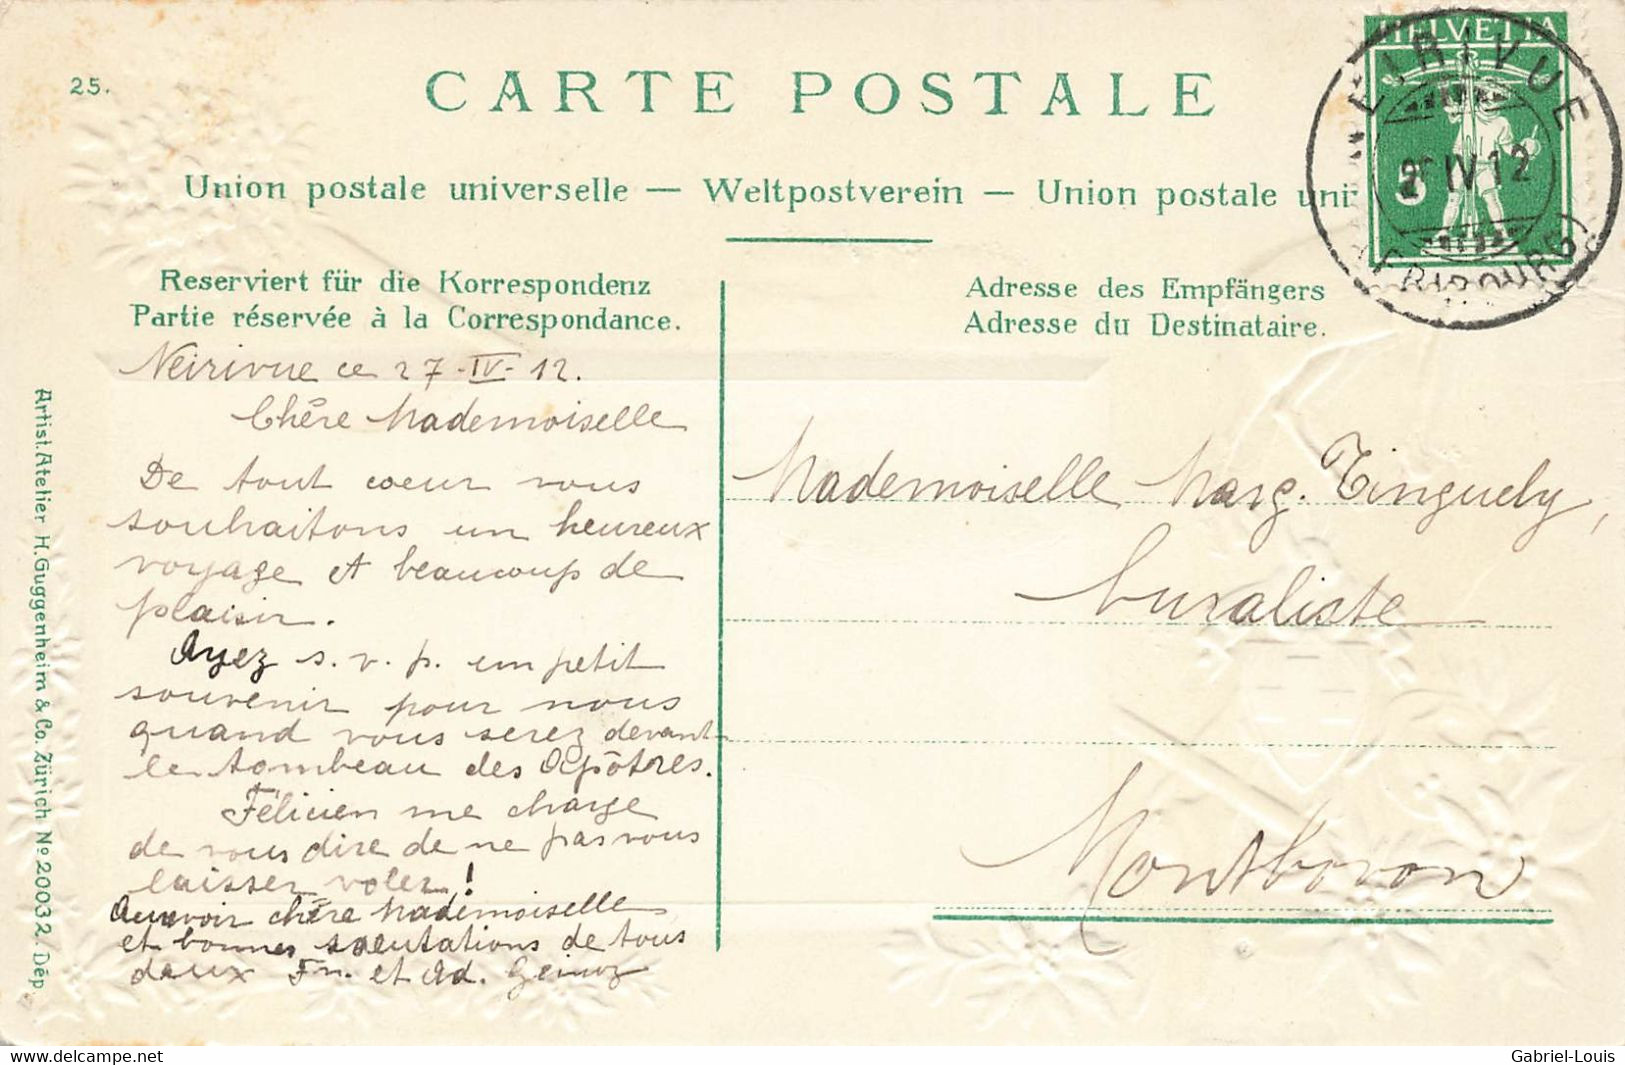 25.
CARTE POSTALE
Union postale universelle — Weltpostverein — Union postale uni
HELVETIA
5
NEIRIVUE
IV 12
(FRIBOURG)
Reserviert für die Korrespondenz
Partie réservée à la Correspondance.
Adresse des Empfängers
Adresse du Destinataire.
Neirivue ce 27-IV-12.
Chère Mademoiselle
De tout coeur vous
souhaitons un heureux
voyage et beaucoup de
plaisir.
Ayez s. v. p. un petit
souvenir pour nous
quand vous serez devant
le tombeau des Apôtres.
Félicien me charge
de vous dire de ne pas vous
laisser voler!
Aurevoir chère Mademoiselle
et bonnes salutations de tous
deux Fn. et Ad. Geinoz
Mademoiselle Marg. Tinguely,
buraliste
Montbovon
Artist. Atelier H. Guggenheim & Co. Zürich No 20032. Dép.
www.delcampe.net
Gabriel-Louis